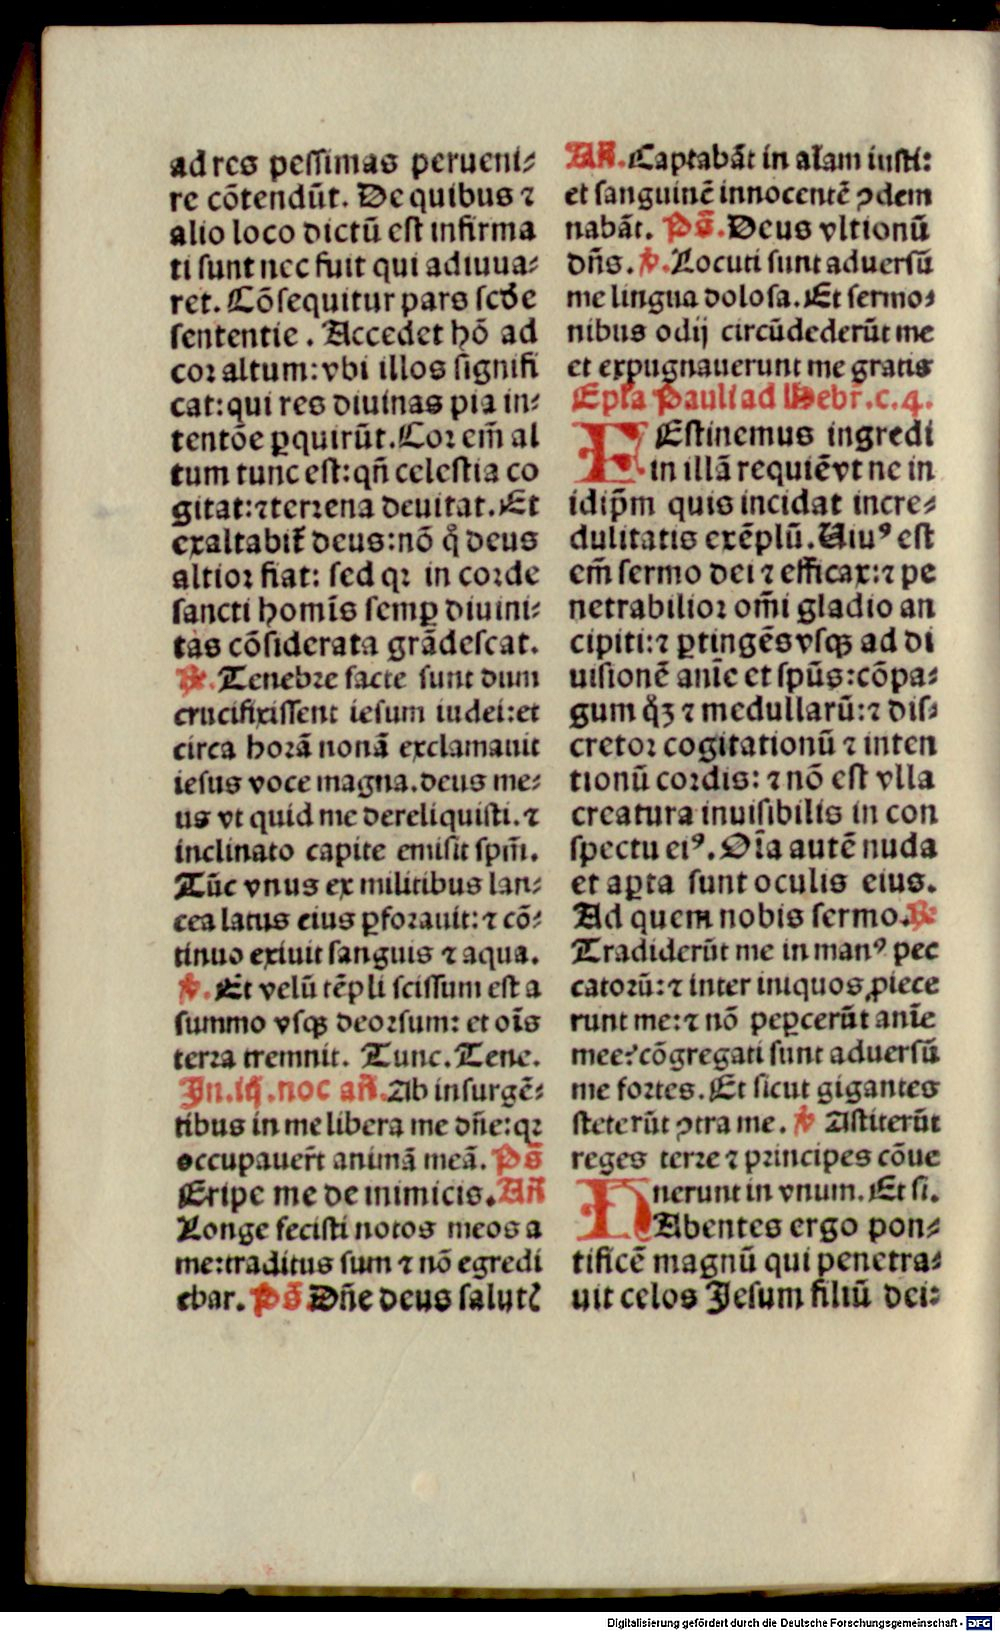 ad res pessimas perueni⸗
re cōtendūt. De quibus ⁊
alio loco dictū est infirma
ti sunt nec fuit qui adiuua⸗
ret. Cōsequitur pars scđe
sententie. Accedet hō ad
cor altum: vbi illos signifi
cat: qui res diuinas pia in⸗
tentōe ꝑquirūt. Cor em̄ al
tum tunc est: qn̄ celestia co
gitat: ⁊ terrena deuitat. Et
exaltabit᷑ deus: nō ꝙ deus
altior fiat: sed qꝛ in corde
sancti homīs semꝑ diuini⸗
tas cōsiderata grādescat.
℟. Tenebre facte sunt dum
crucifixissent iesum iudei: et
circa horā nonā exclamauit
iesus voce magna. deus me⸗
us vt quid me dereliquisti. ⁊
inclinato capite emisit spm̄.
Tūc vnus ex militibus lan⸗
cea latus eius ꝑforauit: ⁊ cō⸗
tinuo exiuit sanguis ⁊ aqua.
℣. Et velū tēpli scissum est a
summo vsqꝫ deorsum: et oīs
terra tremuit. Tunc. Tene.
In .iij. noc an̄. Ab insurgē⸗
tibus in me libera me dn̄e: qꝛ
occupauer̄t animā meā. Ps̄
Eripe me de inimicis. An̄
Longe fecisti notos meos a
me: traditus sum ⁊ nō egredi
ebar. Ps̄. Dn̄e deus salutꝭ
An̄. Captabāt in aīam iusti:
et sanguinē innocentē ꝯdem
nabāt. Ps̄. Deus vltionū
dn̄s. ℣. Locuti sunt aduersū
me lingua dolosa. Et sermo⸗
nibus odij circūdederūt me
et expugnauerunt me gratis
Epl̄a Pauli ad Hebr̄. c. 4.
FEstinemus ingredi
in illā requiē vt ne in
idip̄m quis incidat incre⸗
dulitatis exēplū. Uiuꝰ est
em̄ sermo dei ⁊ efficax: ⁊ pe
netrabilior om̄i gladio an
cipiti: ⁊ ꝑtingēs vsqꝫ ad di
uisionē anīe et spūs: cōpa⸗
gum qͦꝫ ⁊ medullarū: ⁊ dis⸗
cretor cogitationū ⁊ inten
tionū cordis: ⁊ nō est vlla
creatura inuisibilis in con
spectu eiꝰ. Oīa autē nuda
et aꝑta sunt oculis eius.
Ad quem nobis sermo. ℟
Tradiderūt me in manꝰ pec
catorū: ⁊ inter iniquos ꝓiece
runt me: ⁊ nō peꝑcerūt anīe
mee: cōgregati sunt aduersū
me fortes. Et sicut gigantes
steterūt ꝯtra me. ℣ Astiterūt
reges terre ⁊ principes cōue
nerunt in vnum. Et si.
HAbentes ergo pon⸗
tificē magnū qui penetra⸗
uit celos Jesum filiū dei:
Digitalisierung gefördert durch die Deutsche Forschungsgemeinschaft - DFG